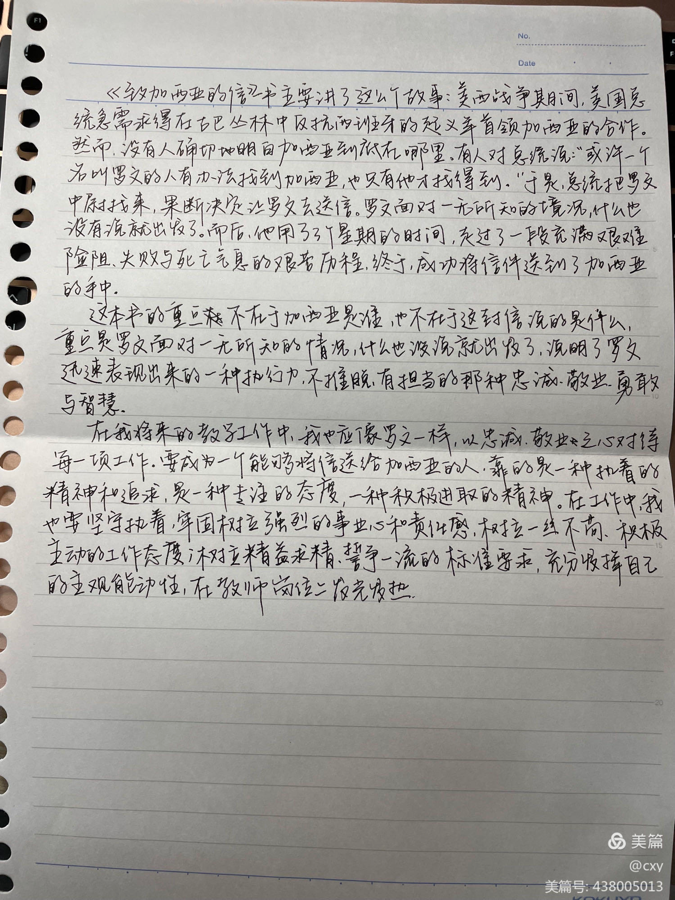 No.
Date
《致加西亚的信》书主要讲了这么个故事：美西战争期间，美国总
统急需求得在古巴丛林中反抗西班牙的起义军首领加西亚的合作。
然而，没有人确切地明白加西亚到底在哪里。有人对总统说："或许一个
名叫罗文的人有办法找到加西亚，也只有他才找得到。"于是，总统把罗文
中尉找来，果断决定让罗文去送信。罗文面对一无所知的境况，什么也
没有说就出发了。而后，他用了3个星期的时间，走过了一段充满艰难
险阻、失败与死亡气息的艰苦历程，终于，成功将信件送到了加西亚
的手中。
这本书的重点 不在于加西亚是谁，也不在于这封信说的是什么，
重点是罗文面对一无所知的情况，什么也没说就出发了，说明了罗文
迅速表现出来的一种执行力，不推脱，有担当的那种忠诚、敬业、勇敢
与智慧.
在我将来的教学工作中，我也应像罗文一样，以忠诚、敬业之心对待
每一项工作.要成为一个能够将信送给加西亚的人，靠的是一种执着的
精神和追求，是一种专注的态度，一种积极进取的精神。在工作中，我
也要坚守执着，牢固树立强烈的事业心和责任感，树立一丝不苟、积极
主动的工作态度；树立精益求精、誓争一流的标准要求，充分发挥自己
的主观能动性，在教师岗位上发光发热.
15
20
美篇
@cxy
美篇号: 438005013
KOKUYO
F1